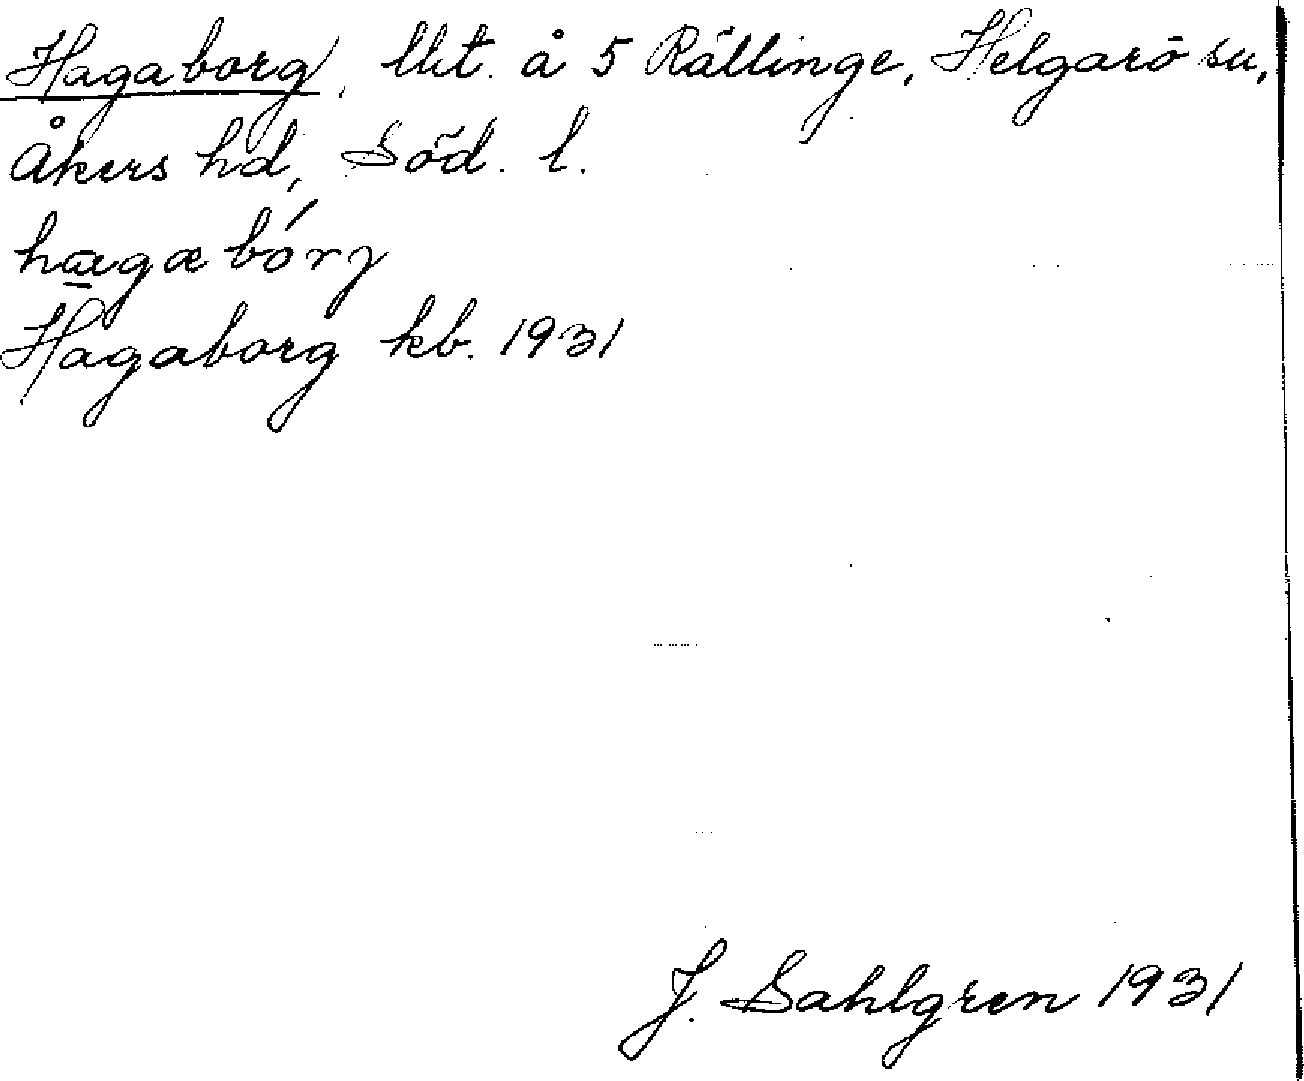 Hagaborg, lht. å 5 Rällinge, Helgarö sn,
Åkers hd, Söd. l.
hagabórj
Hagaborg kb. 1931
J. Sahlgren 1931